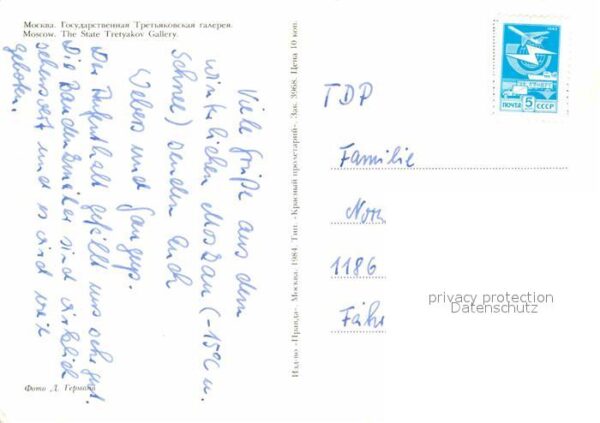 Москва. Государственная Третьяковская галерея.
Moscow. The State Tretyakov Gallery.
Viele Grüße aus dem
winterlichen Moskau (-15°C u.
Schnee) senden Euch
Webers und
Der Aufenthalt gefällt uns sehr gut.
Die Baudenkmäler sind wirklich
sehenswert und es wird viel
geboten.
Фото Д. Германа
Изд-во «Правда». Москва. 1984. Тип. «Красный пролетарий». Зак. 3968. Цена 10 коп.
ПОЧТА 5 СССР
TDP
Familie
1186
privacy protection
Datenschutz